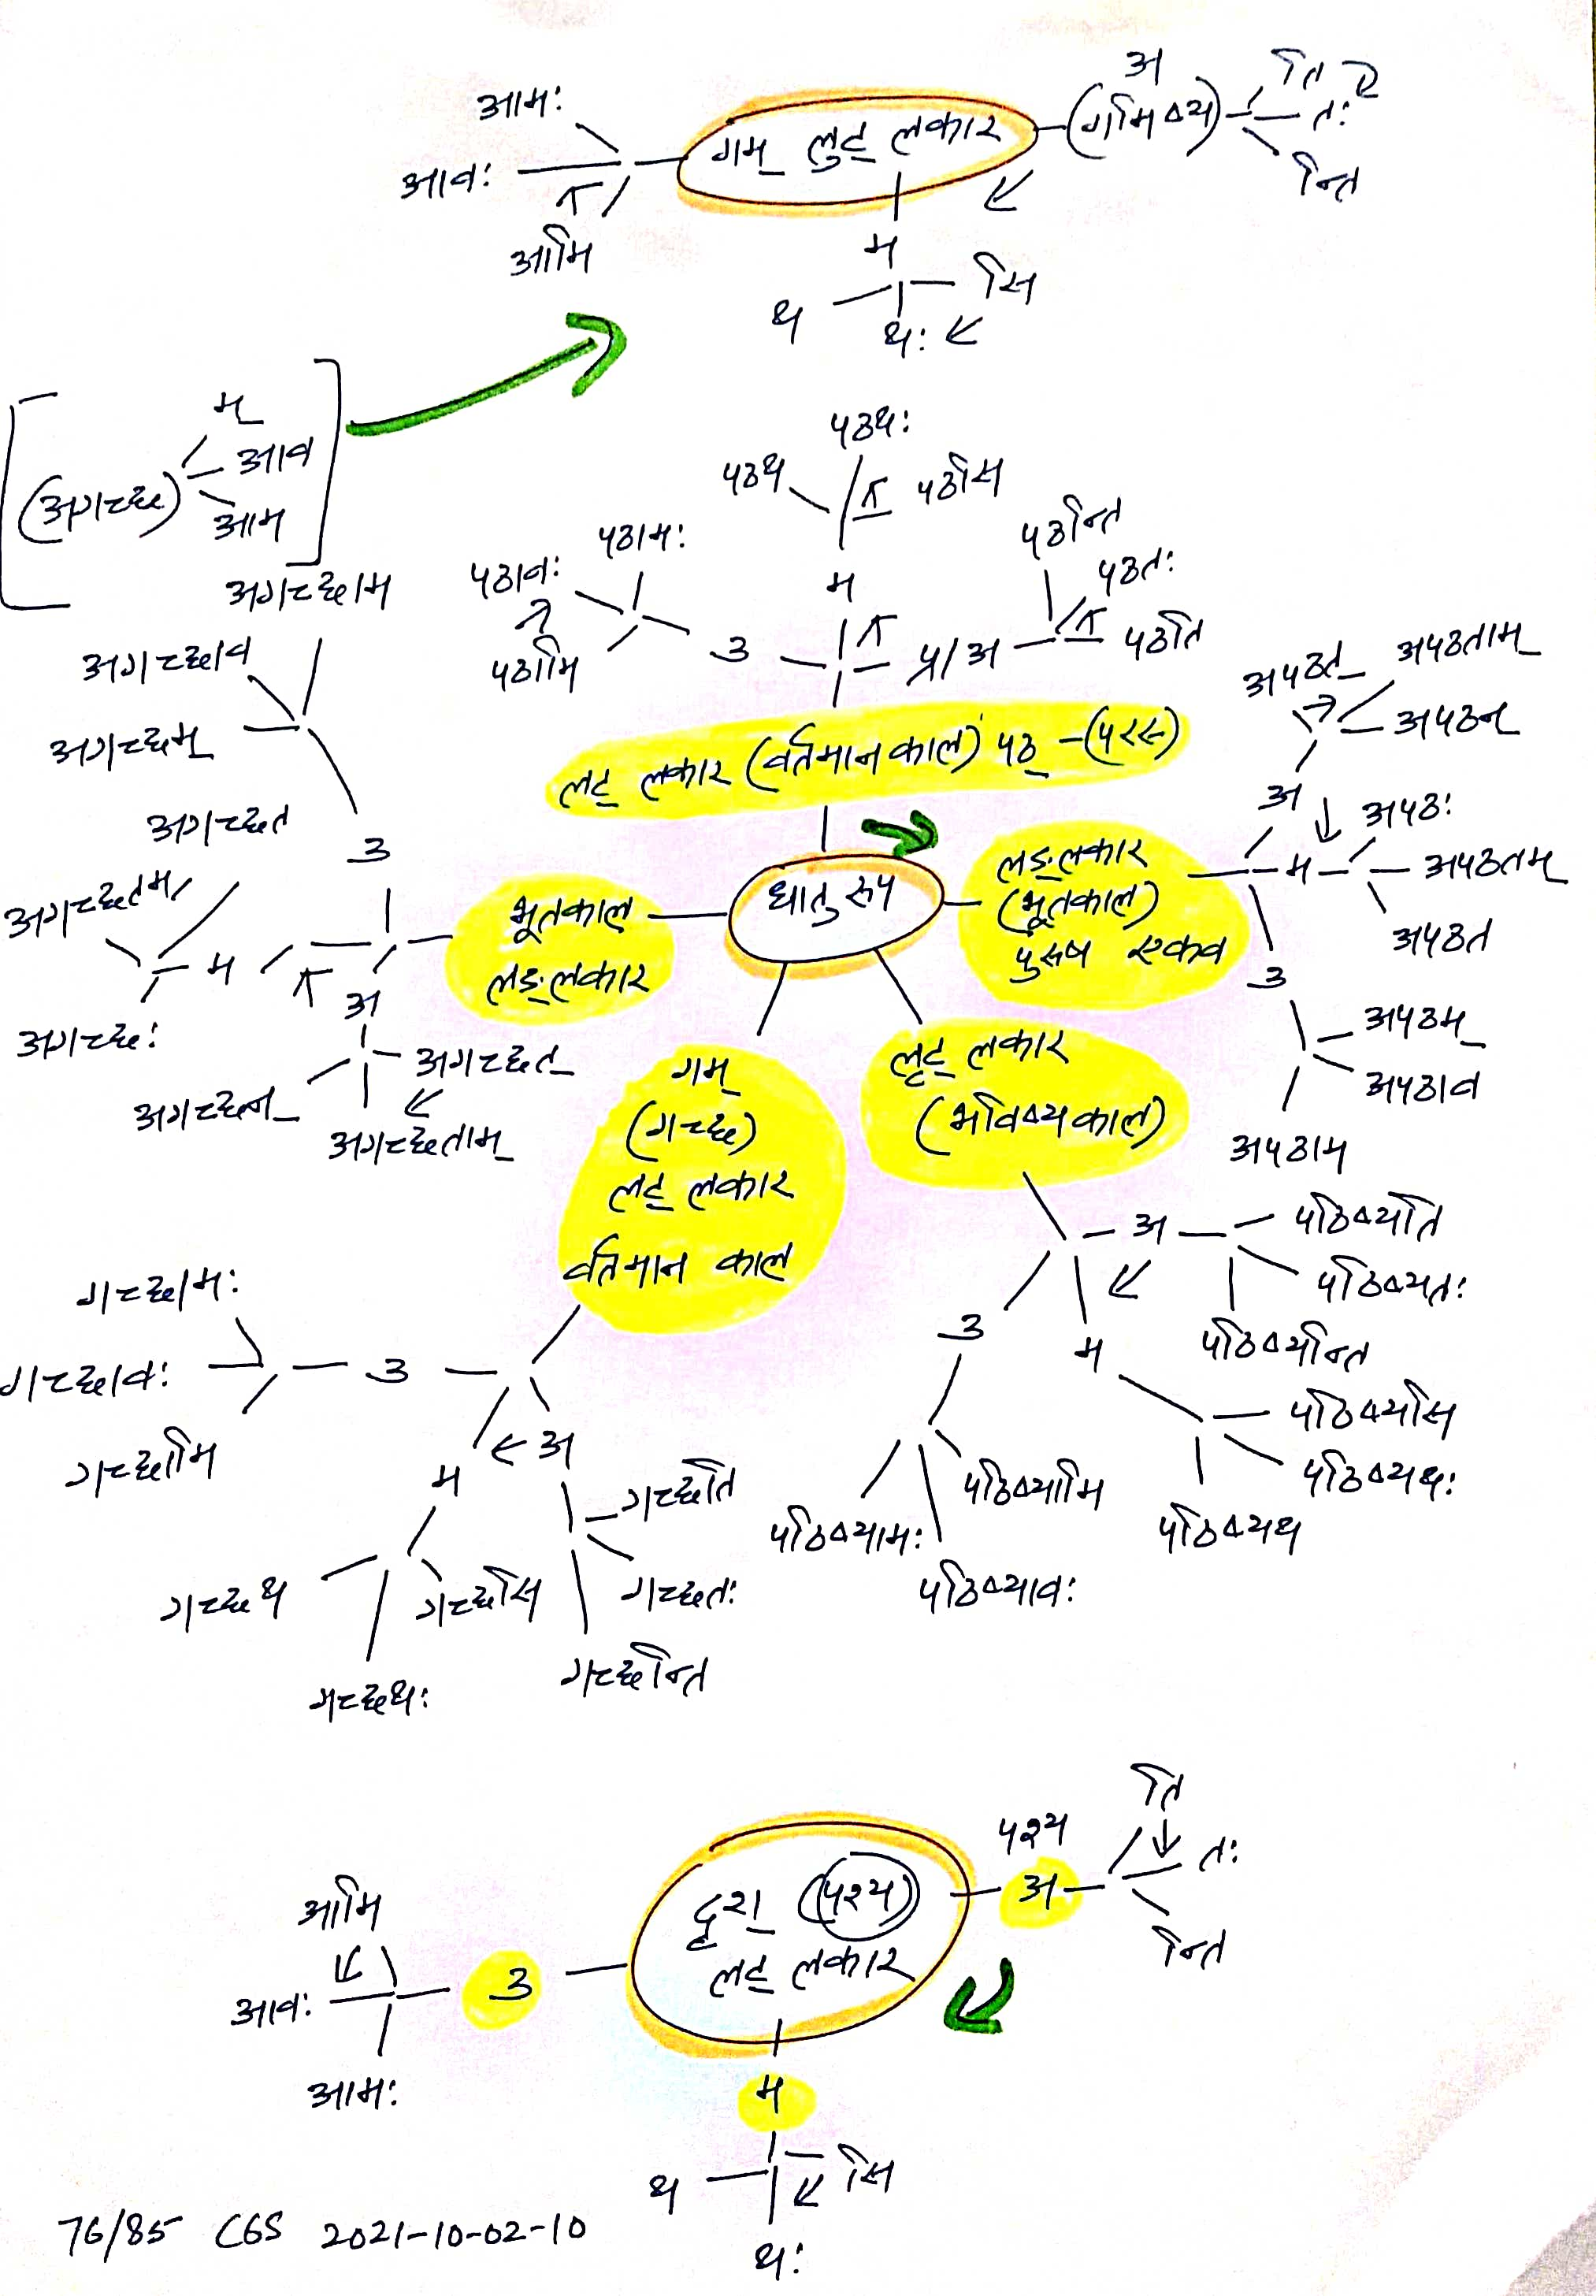 आमः
आवः
आमि
गम् लुट् लकार
अ
(गमिष्य)
ति
तः
न्ति
म
सि
थः
थ
(अगच्छ)
म्
आव
आम
अगच्छाम
अगच्छाव
अगच्छम्
उ
अगच्छत
अगच्छतम्
म
अगच्छः
अ
अगच्छत्
अगच्छताम्
अगच्छन्
भूतकाल
लङ्लकार
पठथः
पठथ
पठसि
म
पठामः
पठावः
पठामि
उ
प्र/अ
पठन्ति
पठतः
पठति
लट् लकार (वर्तमान काल) पठ् -(परस्)
धातु रुप
लङ्लकार
(भूतकाल)
पुरुष एकव
अपठत्
अपठताम्
अपठन्
अ
म
अपठः
अपठतम्
अपठत
उ
अपठम्
अपठाव
अपठाम
गम्
(गच्छ)
लट् लकार
वर्तमान काल
गच्छामः
गच्छावः
गच्छामि
उ
म
अ
गच्छति
गच्छतः
गच्छन्ति
गच्छसि
गच्छथः
गच्छथ
लृट् लकार
(भविष्य काल)
अ
पठिष्यति
पठिष्यतः
पठिष्यन्ति
म
पठिष्यसि
पठिष्यथः
पठिष्यथ
उ
पठिष्यामि
पठिष्यावः
पठिष्यामः
दृश् (पश्य)
लट् लकार
पश्य
अ
ति
तः
न्ति
म
सि
थः
थ
उ
आमि
आवः
आमः
76/85 CGS 2021-10-02-10